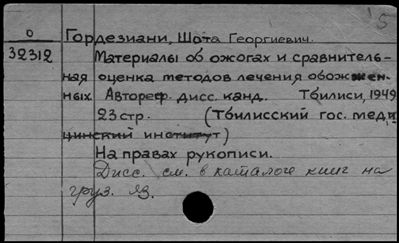 5
О Гордезиани, Шота Георгиевич.
32312 Материалы об ожогах и сравнитель-
ная оценка методов лечения обожжен-
ных Автореф. дисс. канд. Тбилиси, 1949
23 стр. (Тбилисский гос. меди
цинский институт)
На правах рукописи.
Дисс. см. в каталоге книг на
груз. яз.